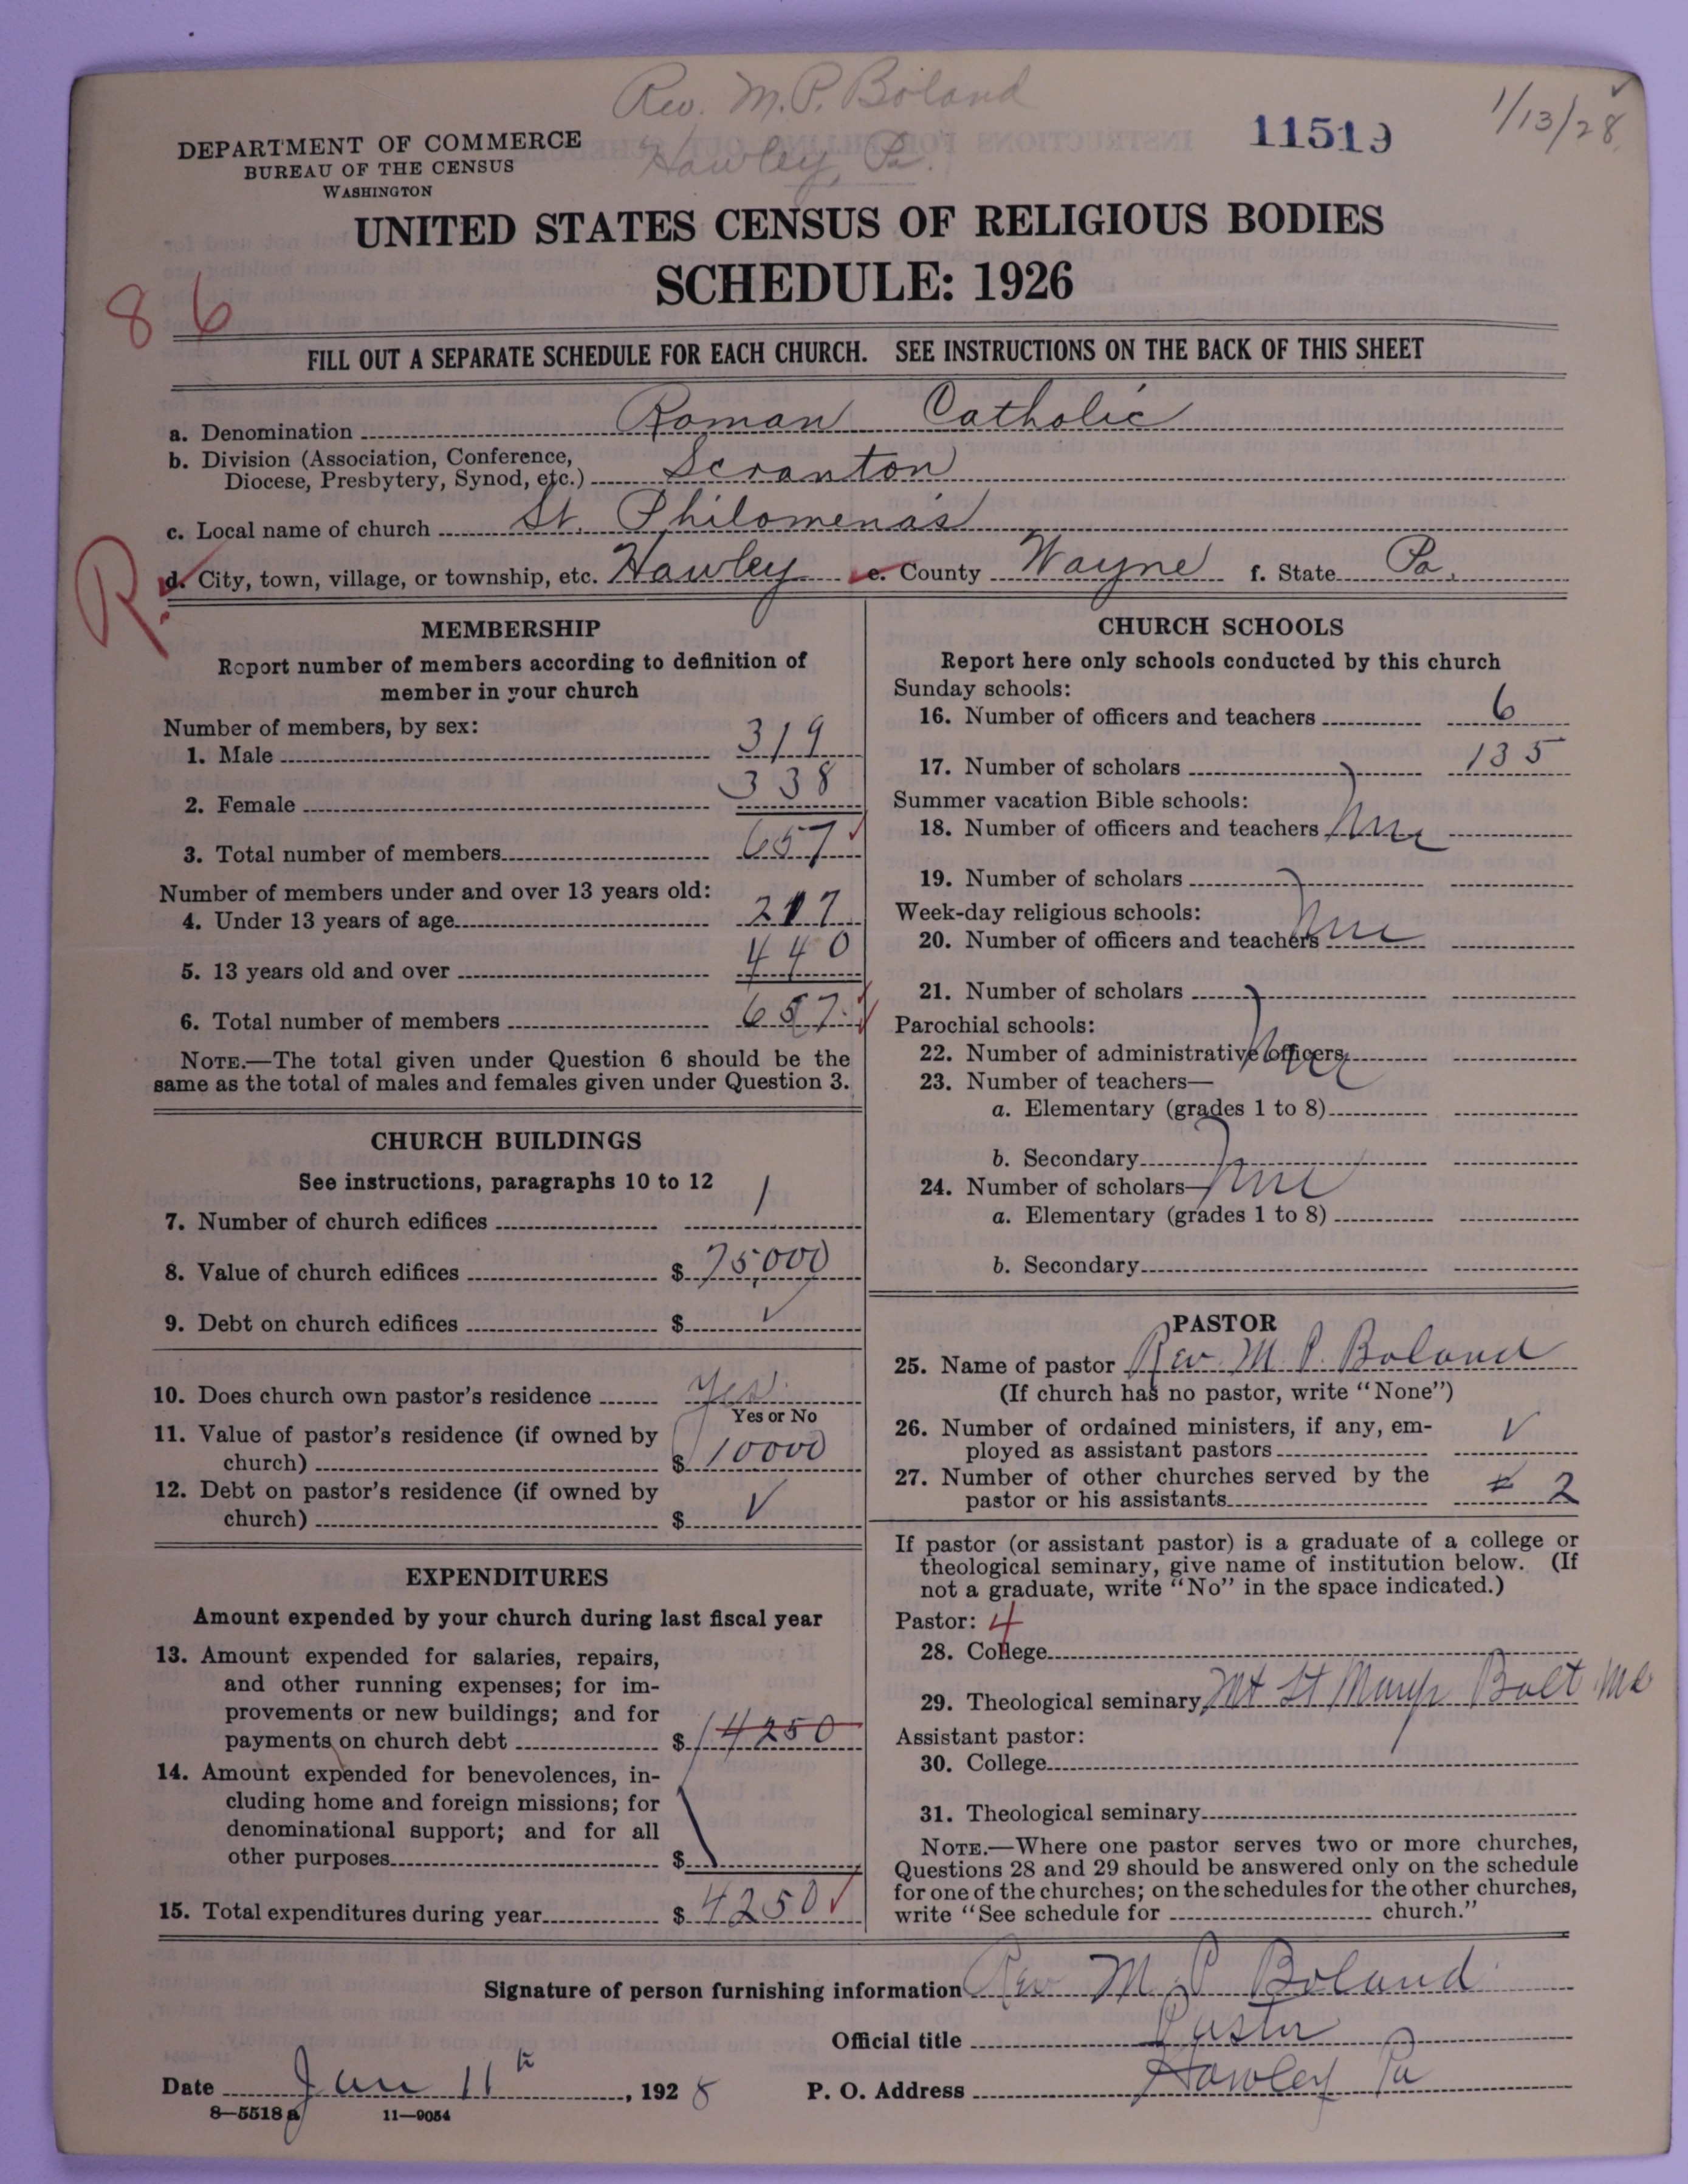 Rev. M.P. Boland
Hawley, Pa.
11519
1/13/28
DEPARTMENT OF COMMERCE
BUREAU OF THE CENSUS
WASHINGTON
UNITED STATES CENSUS OF RELIGIOUS BODIES
SCHEDULE: 1926
86
FILL OUT A SEPARATE SCHEDULE FOR EACH CHURCH. SEE INSTRUCTIONS ON THE BACK OF THIS SHEET
a. Denomination Roman Catholic
b. Division (Association, Conference,
Diocese, Presbytery, Synod, etc.) Scranton
c. Local name of church St. Philomena's
R.
d. City, town, village, or township, etc. Hawley e. County Wayne f. State Pa.
MEMBERSHIP
Report number of members according to definition of
member in your church
Number of members, by sex:
1. Male 319
2. Female 338
3. Total number of members 657
Number of members under and over 13 years old:
4. Under 13 years of age 217
5. 13 years old and over 440
6. Total number of members 657
NOTE.—The total given under Question 6 should be the
same as the total of males and females given under Question 3.
CHURCH BUILDINGS
See instructions, paragraphs 10 to 12
7. Number of church edifices 1
8. Value of church edifices $ 75000
9. Debt on church edifices $ ✓
10. Does church own pastor's residence Yes
Yes or No
11. Value of pastor's residence (if owned by
church) $ 10000
12. Debt on pastor's residence (if owned by
church) $ ✓
EXPENDITURES
Amount expended by your church during last fiscal year
13. Amount expended for salaries, repairs,
and other running expenses; for im-
provements or new buildings; and for
payments on church debt $ 4250
14. Amount expended for benevolences, in-
cluding home and foreign missions; for
denominational support; and for all
other purposes $
15. Total expenditures during year $ 4250
CHURCH SCHOOLS
Report here only schools conducted by this church
Sunday schools:
16. Number of officers and teachers 6
17. Number of scholars 135
Summer vacation Bible schools:
18. Number of officers and teachers
19. Number of scholars
Week-day religious schools:
20. Number of officers and teachers
21. Number of scholars
Parochial schools:
22. Number of administrative officers
23. Number of teachers—
a. Elementary (grades 1 to 8)
b. Secondary
24. Number of scholars—
a. Elementary (grades 1 to 8)
b. Secondary
PASTOR
25. Name of pastor Rev. M. P. Boland
(If church has no pastor, write "None")
26. Number of ordained ministers, if any, em-
ployed as assistant pastors ✓
27. Number of other churches served by the
pastor or his assistants 2
If pastor (or assistant pastor) is a graduate of a college or
theological seminary, give name of institution below. (If
not a graduate, write "No" in the space indicated.)
Pastor: 4
28. College
29. Theological seminary Mt St Marys Balt Md
Assistant pastor:
30. College
31. Theological seminary
NOTE.—Where one pastor serves two or more churches,
Questions 28 and 29 should be answered only on the schedule
for one of the churches; on the schedules for the other churches,
write "See schedule for church."
Signature of person furnishing information Rev M P Boland
Official title Pastor
Date Jan 11th, 1928 P. O. Address Hawley Pa
8—5518 a 11—9054